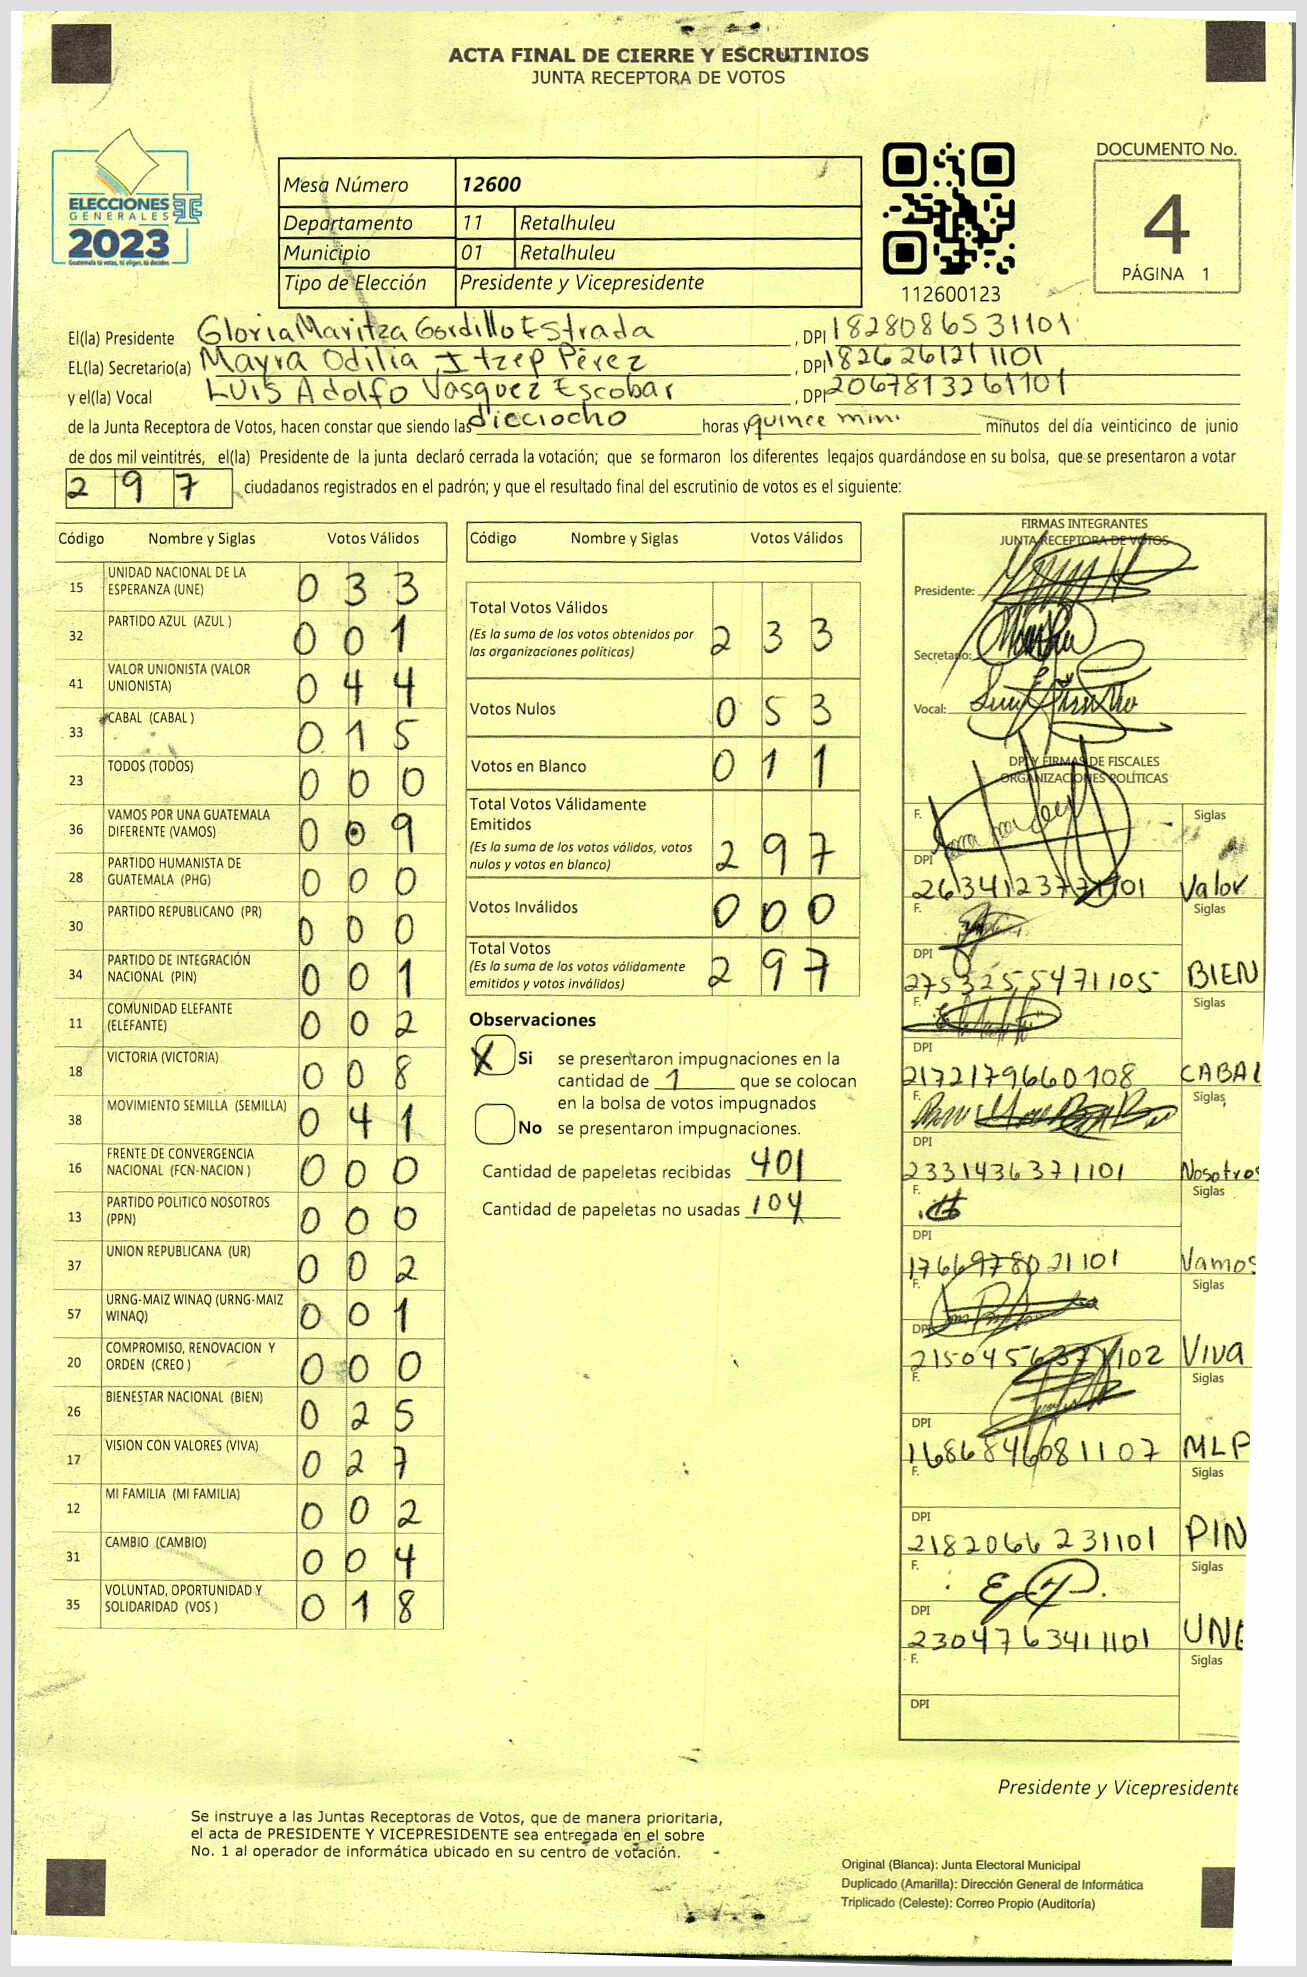 ACTA FINAL DE CIERRE Y ESCRUTINIOS
JUNTA RECEPTORA DE VOTOS
ELECCIONES
GENERALES
2023
Guatemala tú votas, tú eliges, tú decides
Mesa Número 12600
Departamento 11 Retalhuleu
Municipio 01 Retalhuleu
Tipo de Elección Presidente y Vicepresidente
112600123
DOCUMENTO No.
4
PÁGINA 1
El(la) Presidente Gloria Maritza Gordillo Estrada, DPI 1828086531101
EL(la) Secretario(a) Mayra Odilia Itzep Pérez, DPI 1826261211101
y el(la) Vocal Luis Adolfo Vasquez Escobar, DPI 2067813261101
de la Junta Receptora de Votos, hacen constar que siendo las dieciocho horas y quince min. minutos del día veinticinco de junio
de dos mil veintitrés, el(la) Presidente de la junta declaró cerrada la votación; que se formaron los diferentes legajos guardándose en su bolsa, que se presentaron a votar
297 ciudadanos registrados en el padrón; y que el resultado final del escrutinio de votos es el siguiente:
Código Nombre y Siglas Votos Válidos
15 UNIDAD NACIONAL DE LA ESPERANZA (UNE) 0 3 3
32 PARTIDO AZUL (AZUL ) 0 0 1
41 VALOR UNIONISTA (VALOR UNIONISTA) 0 4 4
33 CABAL (CABAL ) 0 1 5
23 TODOS (TODOS) 0 0 0
36 VAMOS POR UNA GUATEMALA DIFERENTE (VAMOS) 0 0 9
28 PARTIDO HUMANISTA DE GUATEMALA (PHG) 0 0 0
30 PARTIDO REPUBLICANO (PR) 0 0 0
34 PARTIDO DE INTEGRACIÓN NACIONAL (PIN) 0 0 1
11 COMUNIDAD ELEFANTE (ELEFANTE) 0 0 2
18 VICTORIA (VICTORIA) 0 0 8
38 MOVIMIENTO SEMILLA (SEMILLA) 0 4 1
16 FRENTE DE CONVERGENCIA NACIONAL (FCN-NACION ) 0 0 0
13 PARTIDO POLITICO NOSOTROS (PPN) 0 0 0
37 UNION REPUBLICANA (UR) 0 0 2
57 URNG-MAIZ WINAQ (URNG-MAIZ WINAQ) 0 0 1
20 COMPROMISO, RENOVACION Y ORDEN (CREO ) 0 0 0
26 BIENESTAR NACIONAL (BIEN) 0 2 5
17 VISION CON VALORES (VIVA) 0 2 7
12 MI FAMILIA (MI FAMILIA) 0 0 2
31 CAMBIO (CAMBIO) 0 0 4
35 VOLUNTAD, OPORTUNIDAD Y SOLIDARIDAD (VOS ) 0 1 8
Código Nombre y Siglas Votos Válidos
Total Votos Válidos
(Es la suma de los votos obtenidos por
las organizaciones políticas) 2 3 3
Votos Nulos 0 5 3
Votos en Blanco 0 1 1
Total Votos Válidamente
Emitidos
(Es la suma de los votos válidos, votos
nulos y votos en blanco) 2 9 7
Votos Inválidos 0 0 0
Total Votos
(Es la suma de los votos válidamente
emitidos y votos inválidos) 2 9 7
Observaciones
X Si se presentaron impugnaciones en la
cantidad de 1 que se colocan
en la bolsa de votos impugnados
No se presentaron impugnaciones.
Cantidad de papeletas recibidas 401
Cantidad de papeletas no usadas 104
FIRMAS INTEGRANTES
JUNTA RECEPTORA DE VOTOS
Presidente:
Secretario:
Vocal:
DPI Y FIRMAS DE FISCALES
ORGANIZACIONES POLÍTICAS
F. Siglas
DPI
2634123771101 Valor
F. Siglas
DPI
2753255471105 BIEN
F. Siglas
DPI
2172179660108 CABAL
F. Siglas
DPI
2331436371101 Nosotros
F. Siglas
DPI
1766978021101 Vamos
F. Siglas
DPI
2150456371102 VIVA
F. Siglas
DPI
1686846081107 MLP
F. Siglas
DPI
2182066231101 PIN
F. Siglas
DPI
2304763411101 UNE
F. Siglas
DPI
Presidente y Vicepresidente
Se instruye a las Juntas Receptoras de Votos, que de manera prioritaria,
el acta de PRESIDENTE Y VICEPRESIDENTE sea entregada en el sobre
No. 1 al operador de informática ubicado en su centro de votación.
Original (Blanca): Junta Electoral Municipal
Duplicado (Amarilla): Dirección General de Informática
Triplicado (Celeste): Correo Propio (Auditoría)